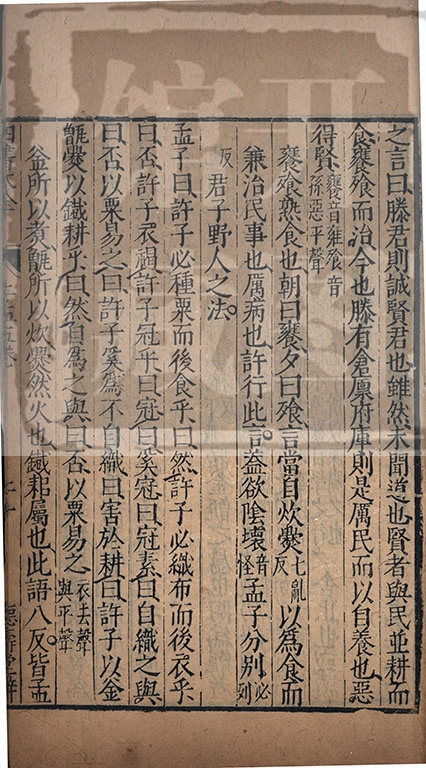 之言曰滕君則誠賢君也雖然未聞道也賢者與民並耕而
食饔飧而治今也滕有倉廩府庫則是厲民而以自養也惡
得賢饔音雍飧音孫惡平聲
饔飧熟食也朝曰饔夕曰飧言當自炊爨七亂反以為食而
兼治民事也厲病也許行此言蓋欲陰壞音怪孟子分別必列
反君子野人之法
孟子曰許子必種粟而後食乎曰然許子必織布而後衣乎
曰否許子衣褐許子冠乎曰冠曰奚冠曰冠素曰自織之與
曰否以粟易之曰許子奚為不自織曰害於耕曰許子以釜
甑爨以鐵耕乎曰然自為之與曰否以粟易之衣去聲與平聲
釜所以煮甑所以炊爨然火也鐵耜屬也此語八反皆孟